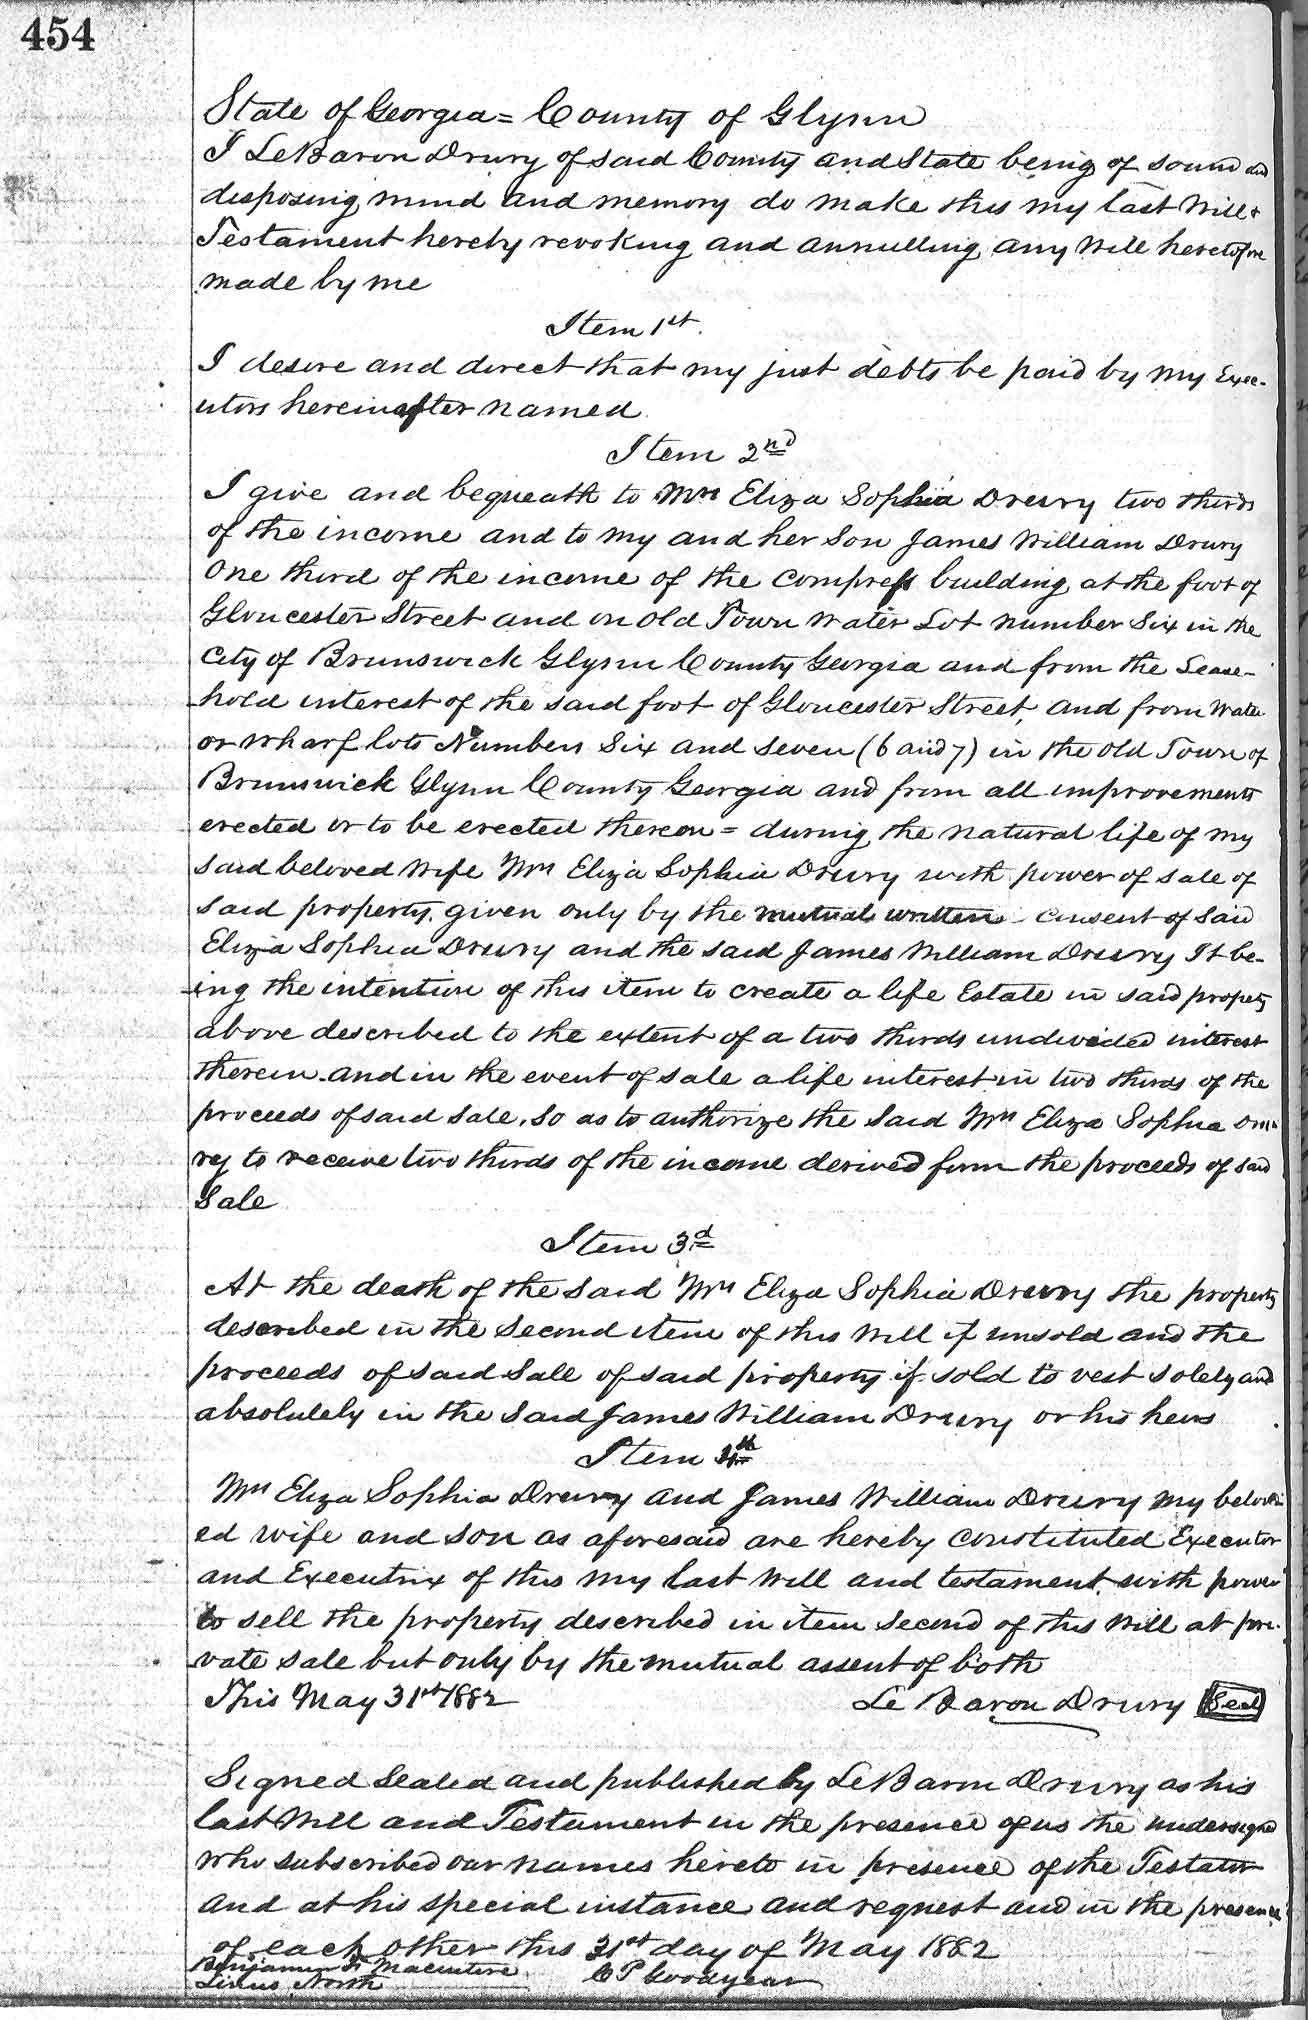 454
State of Georgia = County of Glynn
I LeBaron Drury of said County and State being of sound and
disposing mind and memory do make this my last Will &
Testament hereby revoking and annulling any Will heretofore
made by me
Item 1st.
I desire and direct that my just debts be paid by my Exec-
utors hereinafter named
Item 2nd
I give and bequeath to Mrs Eliza Sophia Drury two thirds
of the income and to my and her Son James William Drury
One third of the income of the compress building at the foot of
Gloucester Street and on Old Town Water Lot number Six in the
City of Brunswick Glynn County Georgia and from the Lease-
hold interest of the said foot of Gloucester Street, and from Water
or Wharf lots Numbers Six and Seven (6 and 7) in the Old Town of
Brunswick Glynn County Georgia and from all improvements
erected or to be erected thereon = during the natural life of my
said beloved Wife Mrs Eliza Sophia Drury with power of sale of
said property, given only by the mutual written consent of said
Eliza Sophia Drury and the said James William Drury It be-
ing the intention of this item to create a life Estate in said property
above described to the extent of a two thirds undivided interest
therein and in the event of sale a life interest in two thirds of the
proceeds of said sale. So as to authorize the said Mrs Eliza Sophia Dru-
ry to receive two thirds of the income derived form the proceeds of said
Sale
Item 3d
At the death of the said Mrs Eliza Sophia Drury the property
described in the Second item of this Will if unsold and the
proceeds of said Sale of said property if sold to vest solely and
absolutely in the Said James William Drury or his heirs
Item 4th
Mrs Eliza Sophia Drury and James William Drury my belov-
ed wife and son as aforesaid are hereby constituted Executor
and Executrix of this my last Will and testament with power
to sell the property described in item Second of this Will at pri-
vate sale but only by the mutual assent of both
This May 31st 1882 Le Baron Drury Seal
Signed Sealed and published by LeBaron Drury as his
last Will and Testament in the presence of us the undersigned
Who subscribed our names hereto in presence of the Testator
and at his special instance and request and in the presence
of each other this 31st day of May 1882
Benjamin F Macintire C P Goodyear
Linus North